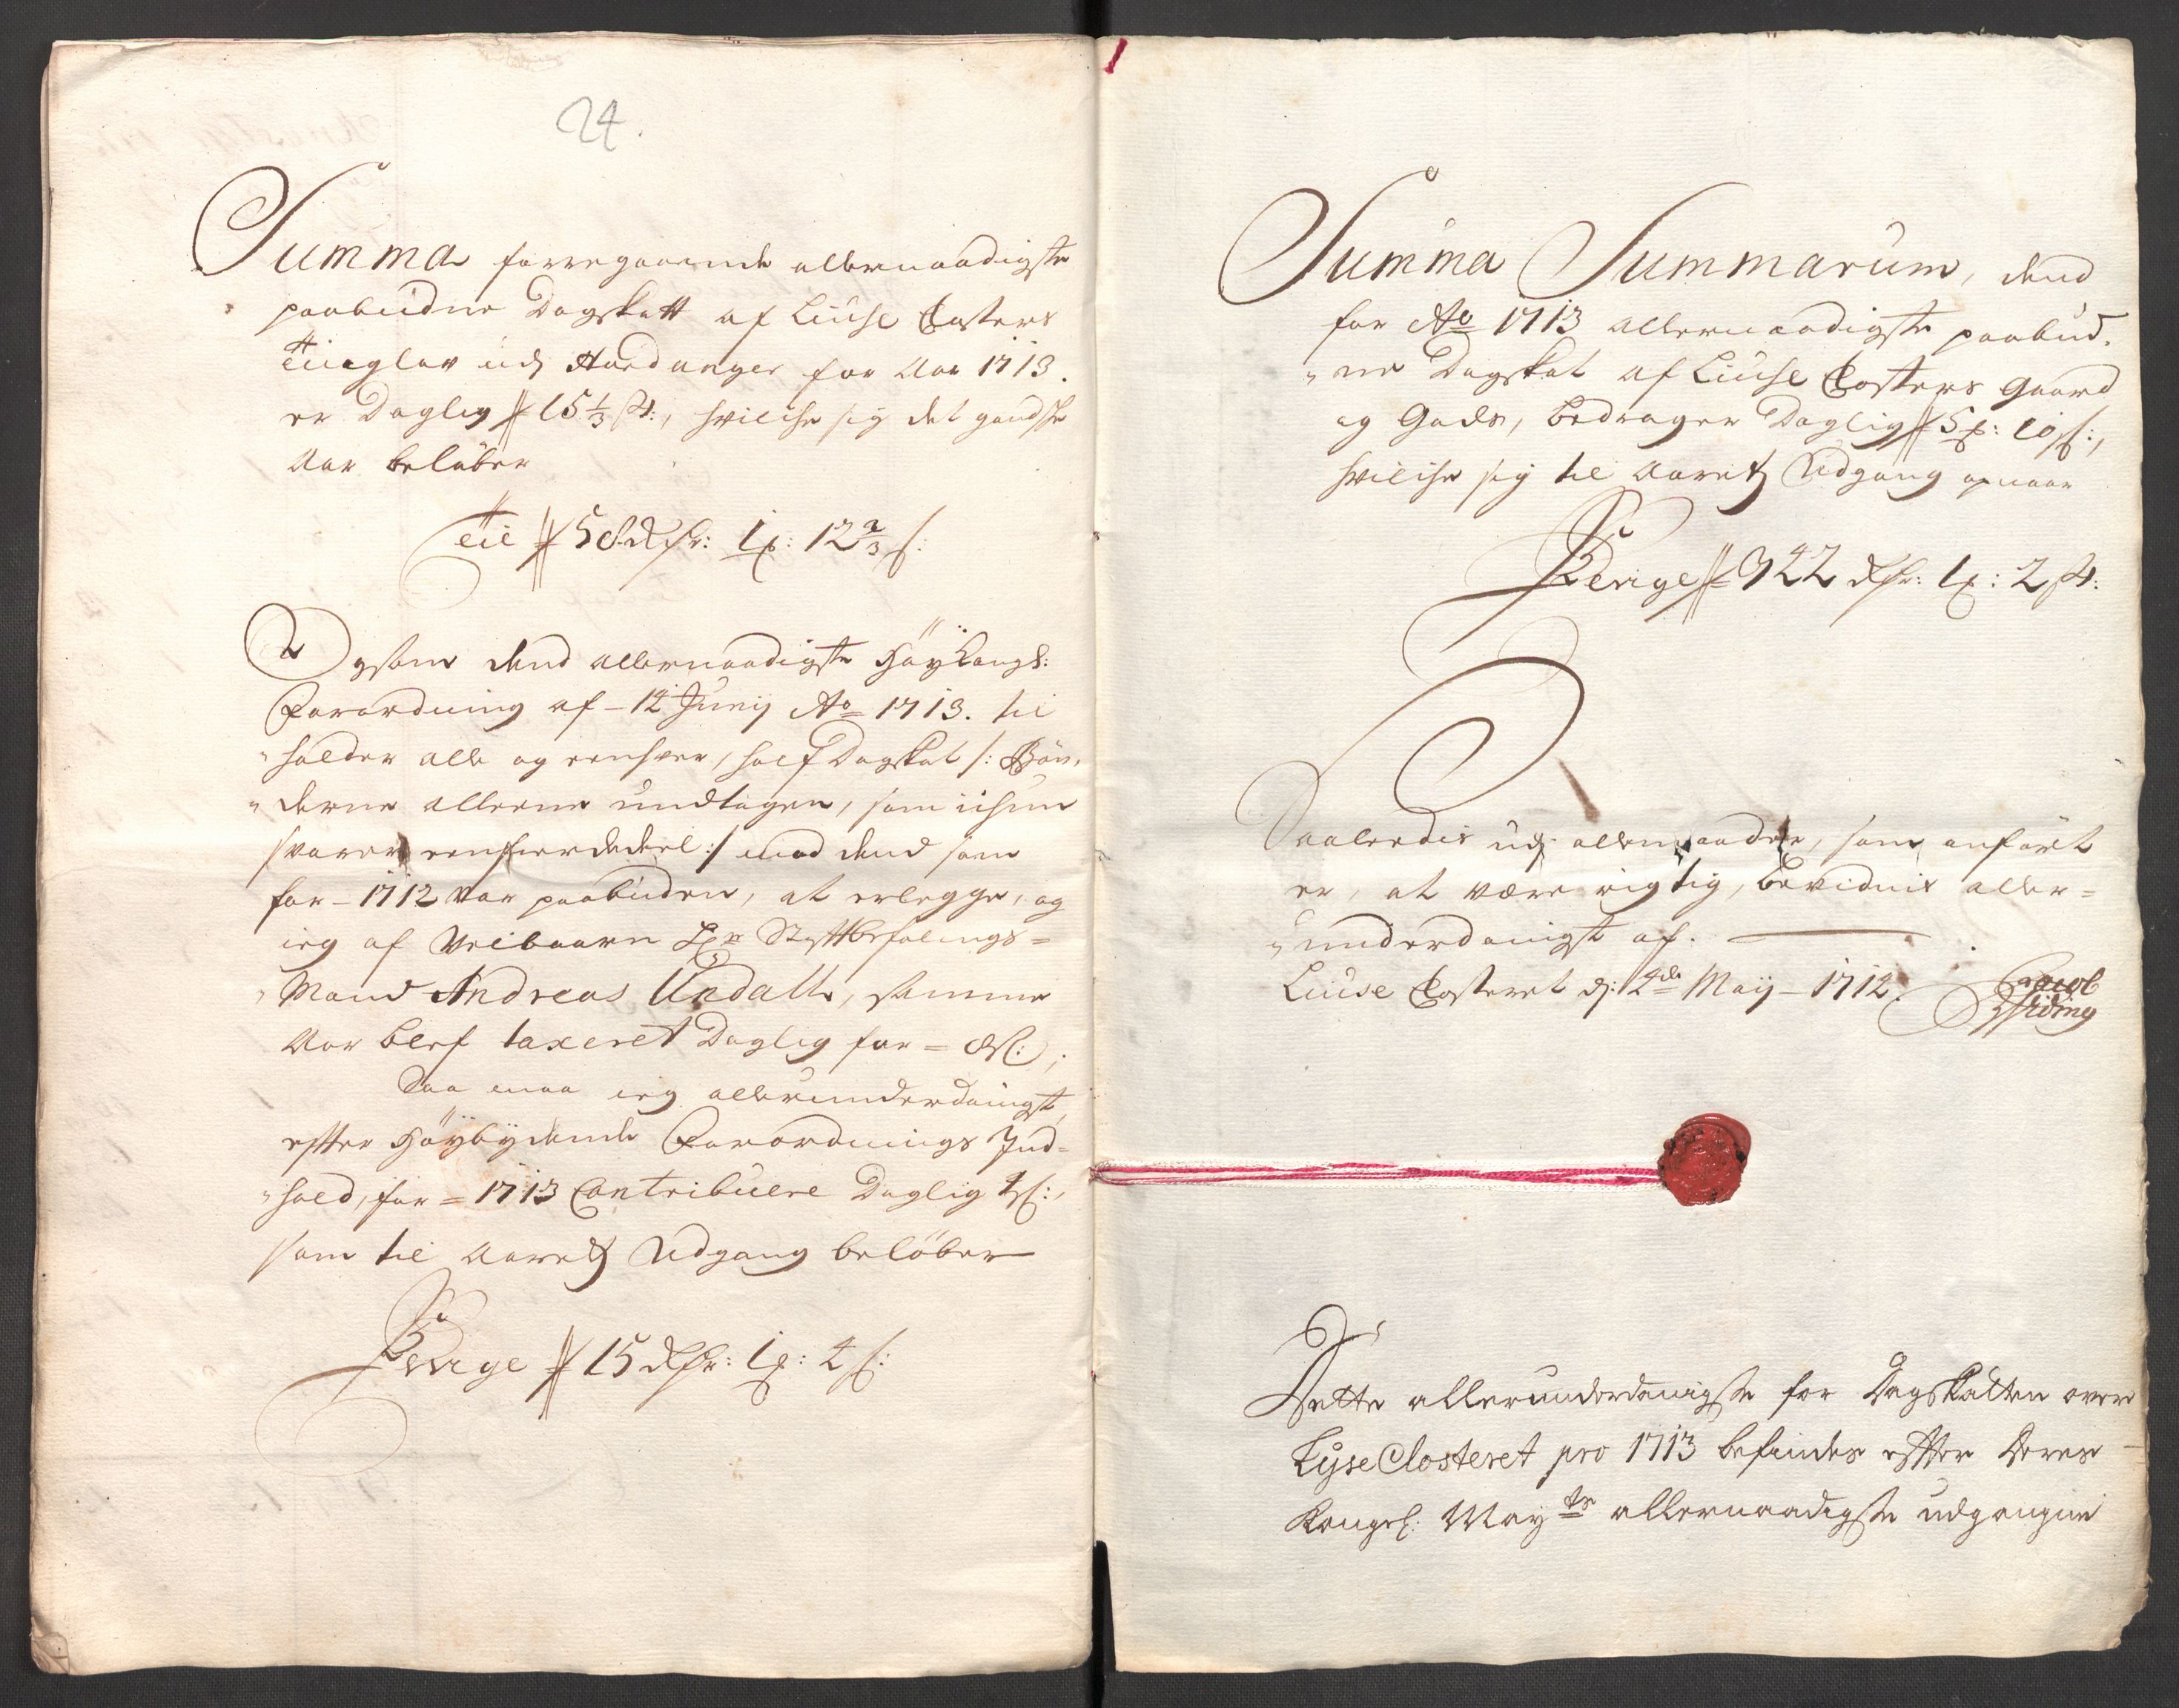 24.
Summa forregaaende allernaadigste
paabudne Dagskatt af Liuse Closters
Tinglav udj Hardanger for Aar 1713.
er Daglig 15 1/3 s:, hvilche sig det gandske
Aar beløber
Til 58 Rdr: 1 : 12 2/3 s:
Ogsom dend allernaadigste Høy Kongl:
Forordning af - 14 Junij Ao 1713. til
"holder alle og eenhver, half Dagskat /: Bøn,
"derne alleene undtagen, som ichun
svarer eenfierdedeel :/ mod dend som
for - 1712 var paabuden, at erlegge, og
ieg af Velbaarn Hr Stifftbefalings=
Mand Andreas Undall, samme
Aar blef taxeret Daglig for = 8 s:,
Saa maa ieg allerunderdanigst
effter Høybydende Forordnings Ind=
"hold, for = 1713 Contribuere Daglig 4 s:,
som til Aaretz Udgang beløber
Penge 15 Rdr: 1 : 4 s:
Summa Summarum, dend
for Ao 1713 allernaadigste paabud,
"ne Dagskat af Liuse Closters Gaard
og Gods, bedrager Daglig 5 : 10 s:,
hvilche sig til Aaretz Udgang opnaar
Penge 942 Rdr: 1 : 2 s:
Saaledis udj allemaader, som anført
er, at være rigtig, bevidnis aller=
"underdanigst af.
Liuse Closteret dj: 4de Maij - 1712.
Jacob
Widing
Dette allerunderdanigste for Dagskatten over
Lyse Closteret pro 1713 befindes effter Deres
Kongel: Mayts allernaadigste udgangne